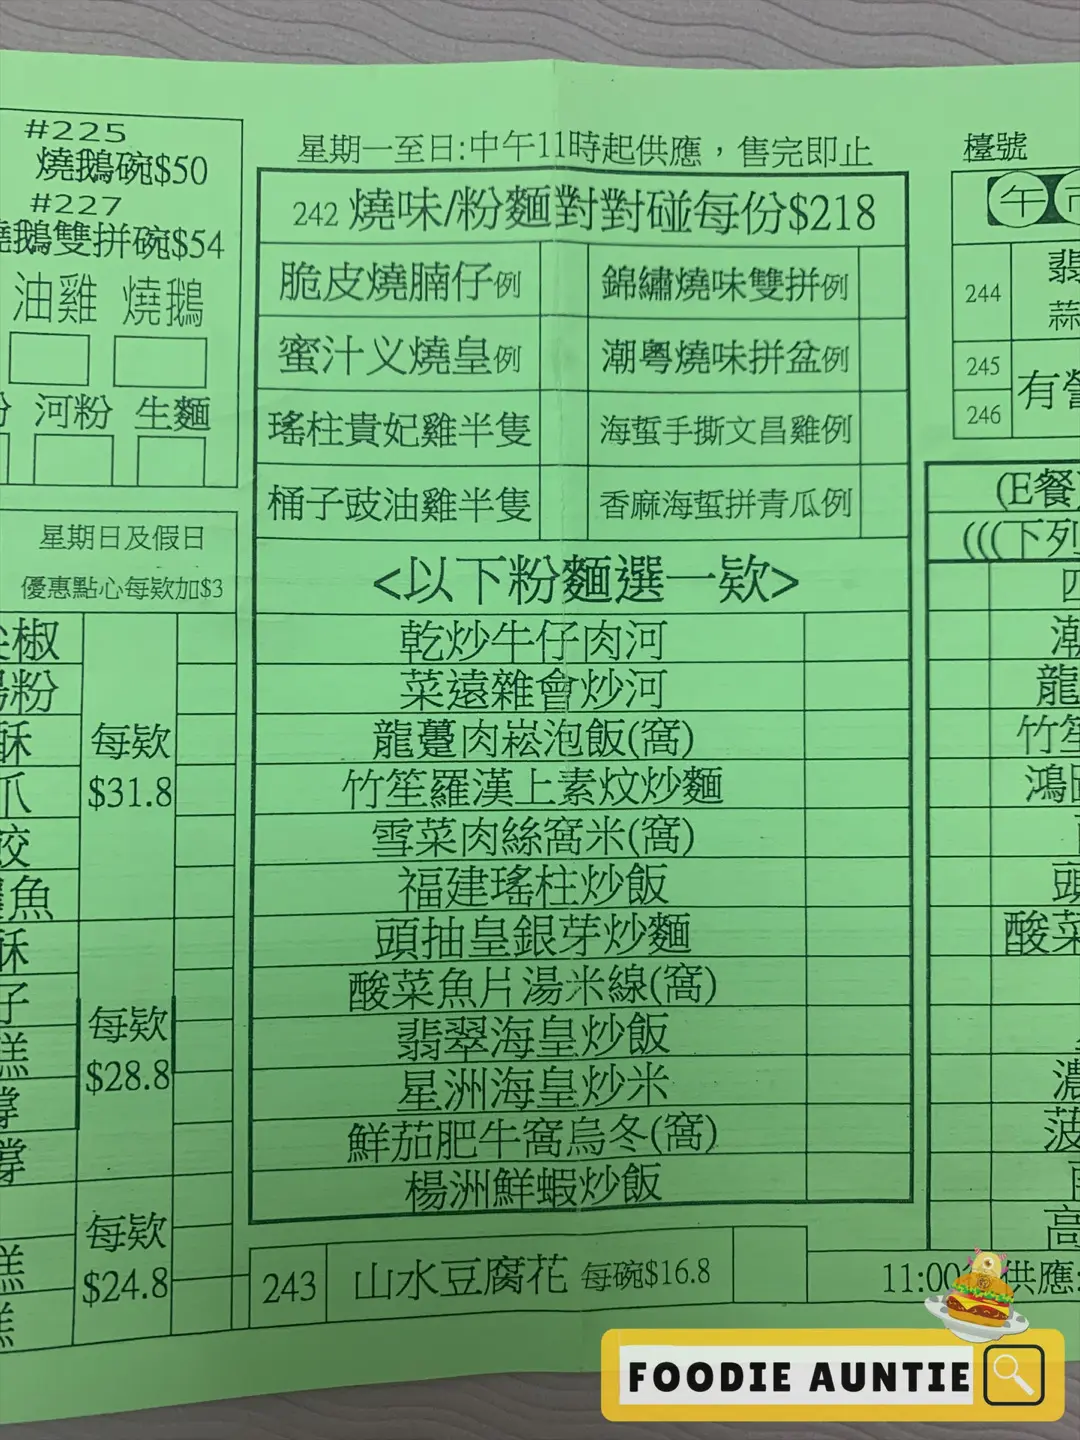 #225
燒鵝碗$50
#227
燒鵝雙拼碗$54
油雞 燒鵝
河粉 生麵
星期日及假日
優惠點心每欵加$3
椒
粉
酥
瓜
餃
魚
每欵
$31.8
酥
子
糕
每欵
$28.8
糕
每欵
$24.8
星期一至日:中午11時起供應，售完即止
242 燒味/粉麵對對碰每份$218
脆皮燒腩仔例
錦繡燒味雙拼例
蜜汁义燒皇例
潮粵燒味拼盆例
瑤柱貴妃雞半隻
海蜇手撕文昌雞例
桶子豉油雞半隻
香麻海蜇拼青瓜例
<以下粉麵選一欵>
乾炒牛仔肉河
菜遠雜會炒河
龍躉肉崧泡飯(窩)
竹笙羅漢上素炆炒麵
雪菜肉絲窩米(窩)
福建瑤柱炒飯
頭抽皇銀芽炒麵
酸菜魚片湯米線(窩)
翡翠海皇炒飯
星洲海皇炒米
鮮茄肥牛窩烏冬(窩)
楊洲鮮蝦炒飯
243 山水豆腐花 每碗$16.8
檯號
午市
244
翡
蒜
245
246
有營
(E餐)
(((下列
四
潮
龍
竹笙
鴻圖
頭
酸菜
濃
菠
高
11:00 供應:
FOODIE AUNTIE